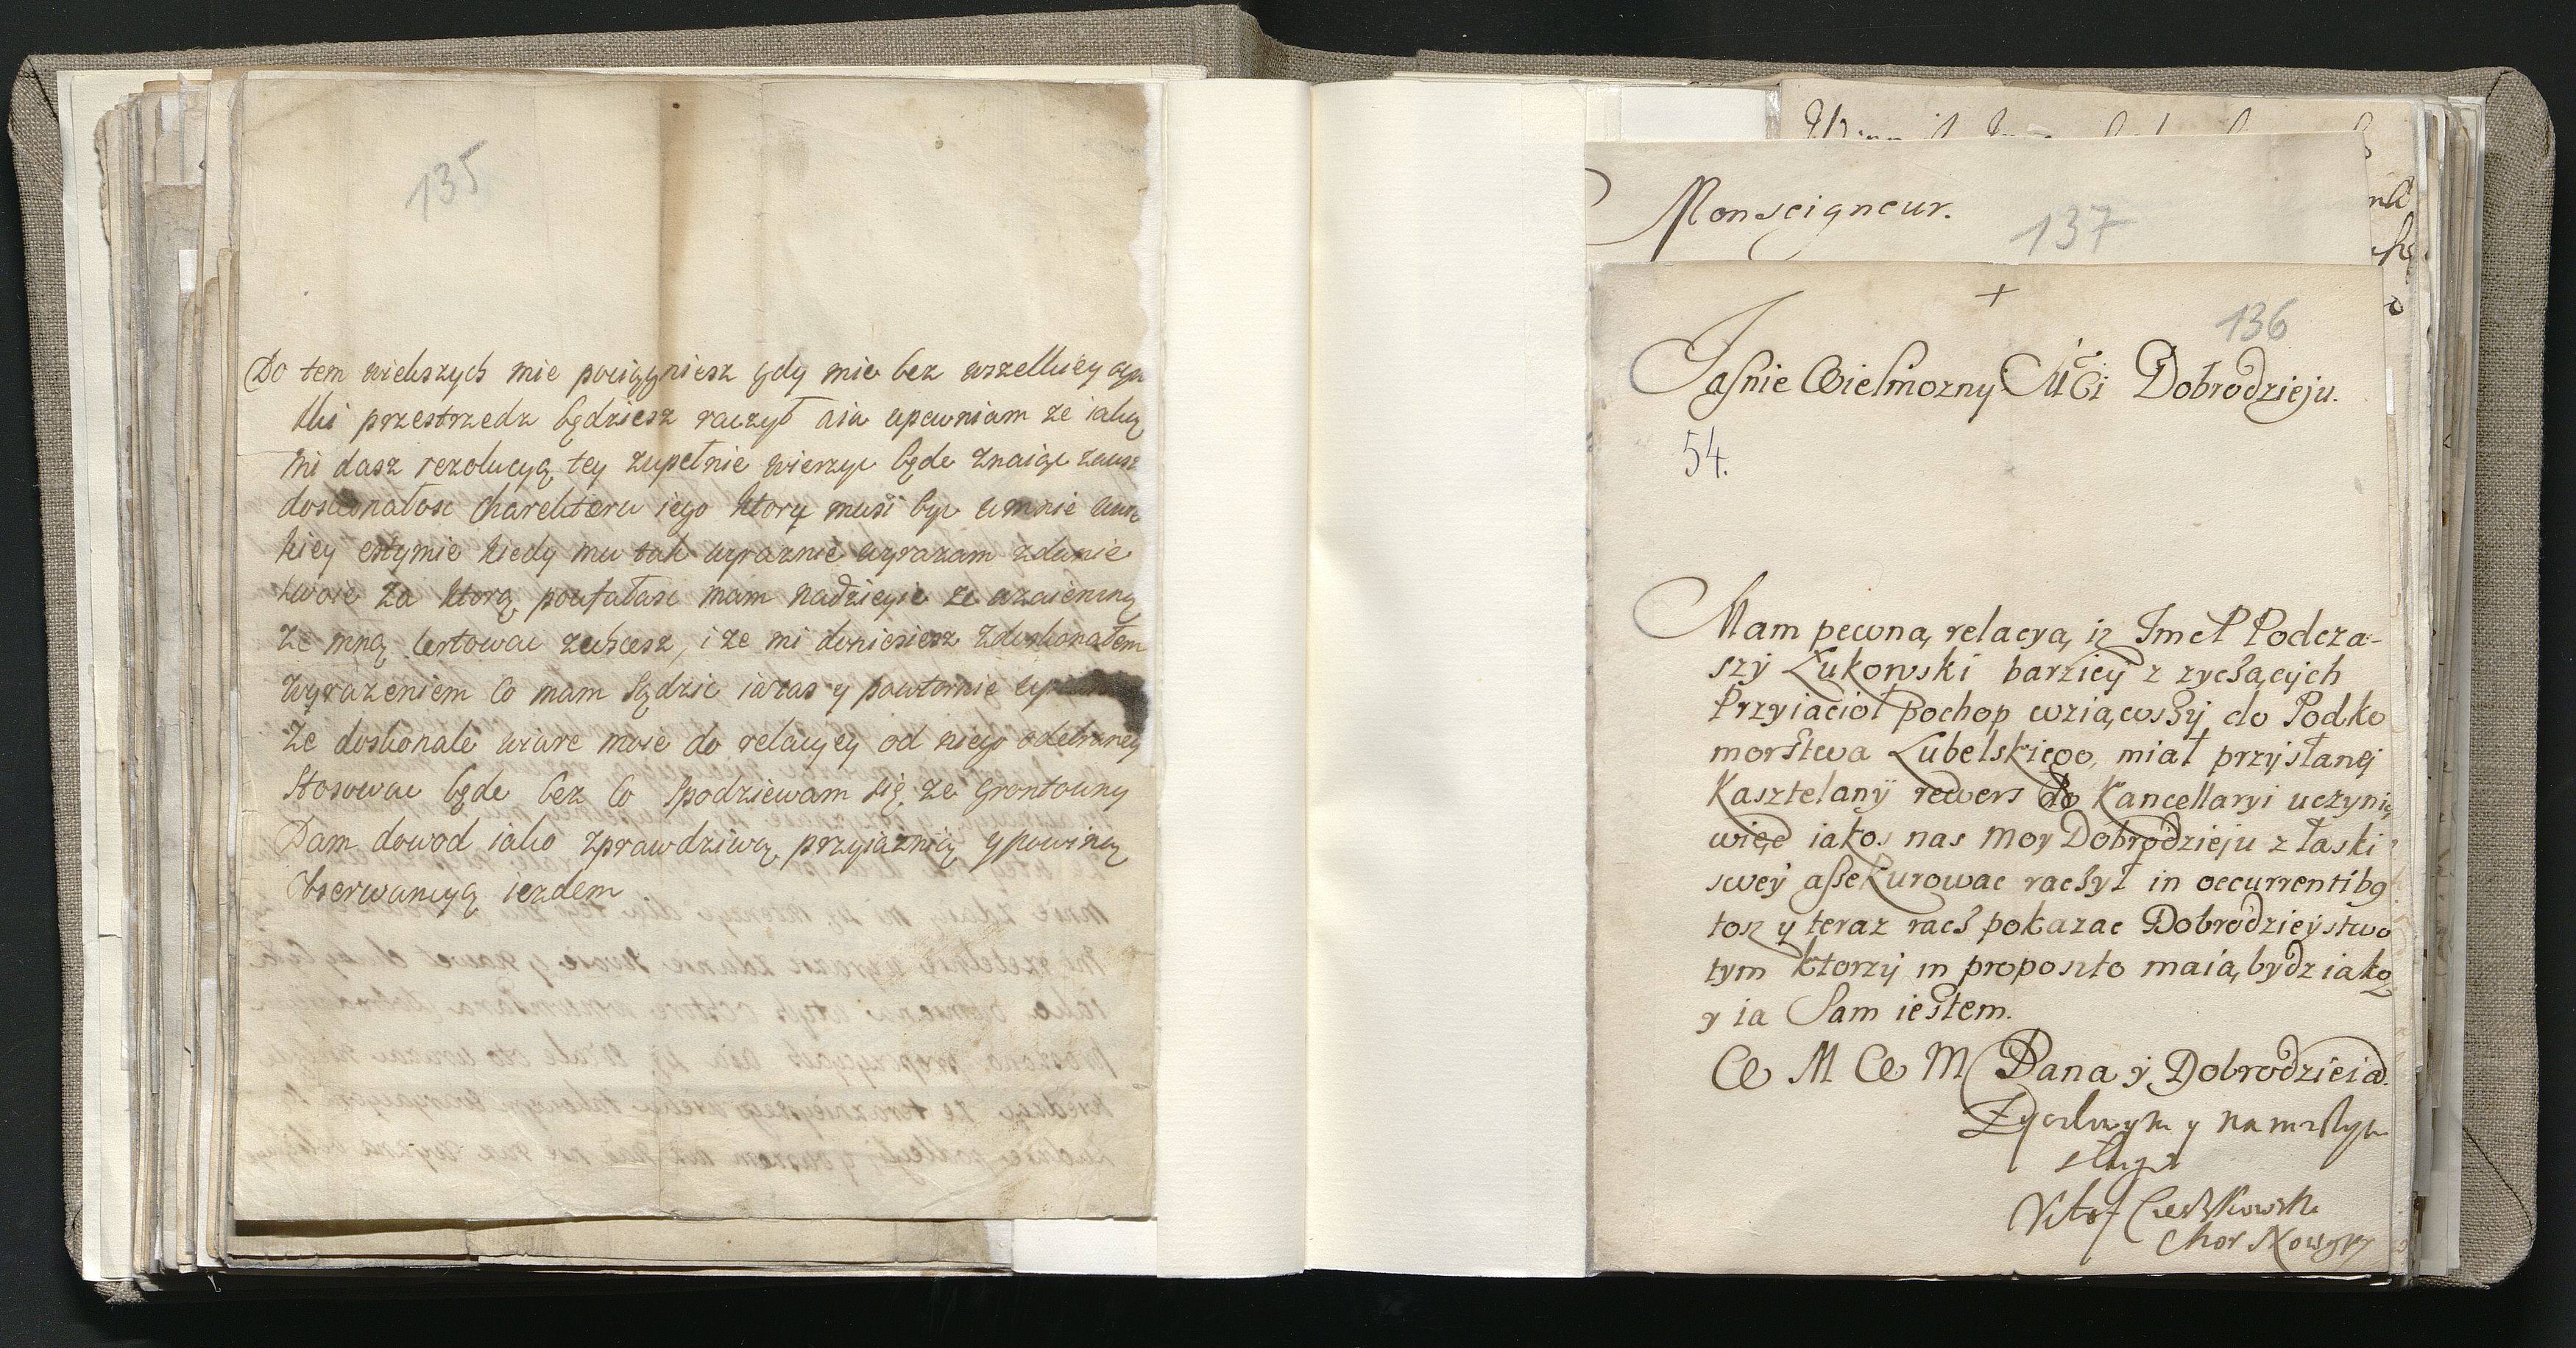 135
Do tem wiekszych mie pociągniesz gdy mie bez wszelkiey
przestrzedz będziesz raczył aia upewniam ze iaką
mi dasz rezolucyą tey zupełnie wierzyc będe znaiąc
doskonałosc charekteru iego ktory musi byc umnie
kiey estymie kiedy mu tak wyraznie wyrazam zdanie
swoie za ktorą poufałosc mam nadzieyie ze wzaiemną
ze mną certowac zechcesz, i ze mi doniesiesz zdoskonałem
wyrazeniem co mam sądzic iazas y powtornie
ze doskonale wiare moie do relacyey od niego odebraney
stosowac będe bez co spodziewam się, ze grontowny
Dam dowod iako zprawdziwą przyiaznią ypowiną
obserwancyą iezdem
Monseigneur.
137
+
136
Jasnie Wielmozny Mći Dobrodzieju.
54.
Mam pewną relacyą iz Jmć P Podcza-
szy Łukowski barziey z zyczących
Przyiacioł pochop wziąwszy do Podko
morstwa Lubelskiego, miał przysłaney
Kasztelany rewers do Kancellaryi uczynić
więc iakos nas moy Dobrodzieju z łaski
swey assekurowac raczył in occurrentibq
tosz y teraz racz pokazac Dobrodzieystwo
tym ktorzy in proposito maią bydz iako
y ia Sam iestem.
W M W M Pana y Dobrodzieia.
Zyczliwym y nanizszym
sługą
Cieszkowski
Chor Nowogr